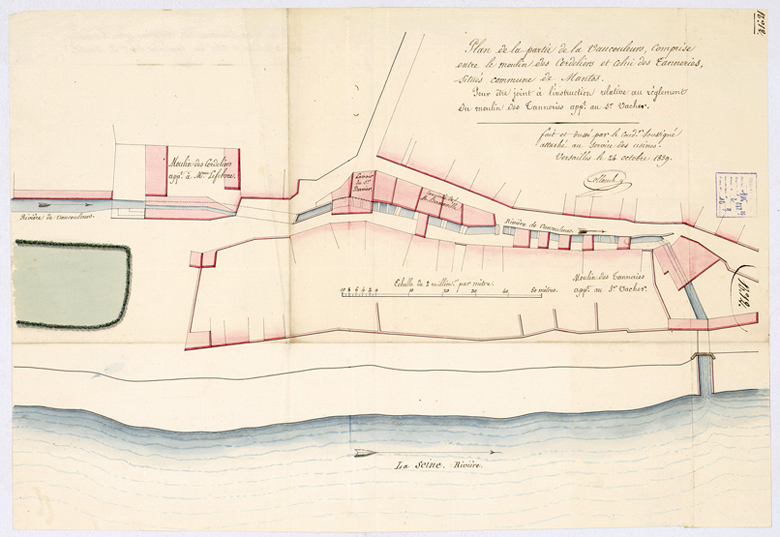 Plan de la partie de la Vaucouleurs, comprise
entre le moulin des Cordeliers et celui des Tanneries,
situés commune de Mantes.
Pour être joint à l'instruction relative au règlement
du moulin des Tanneries appt. au Sr. Vacher.
fait et dressé par le Condr. soussigné
attaché au Service des usines.
Versailles le 24 octobre 1839.
Moulin des Cordeliers
appt. à Mme. Lefebvre.
Lavoir
du Sr.
Rivière de Vaucouleurs.
Rivière de Vaucouleurs.
Moulin des Tanneries
appt. au Sr. Vacher.
Echelle de 2 millim. par mètre.
10 8 6 4 2 0 10 20 30 40 50 mètres.
La Seine. Rivière.